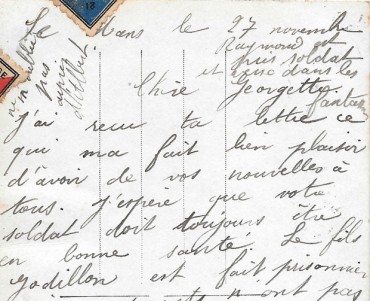 Le Mans le 27 novembre
Raymond est
et puis soldat
dans les
fantas
Chère Georgette
n'oublie
pas
J'ai recu ta lettre ce
qui ma fait bien plaisir
d'avoir de vos nouvelles à
tous. j'espère que votre
soldat doit toujours être
en bonne santé. Le fils
Godillon est fait prisonnier
n'ont pas